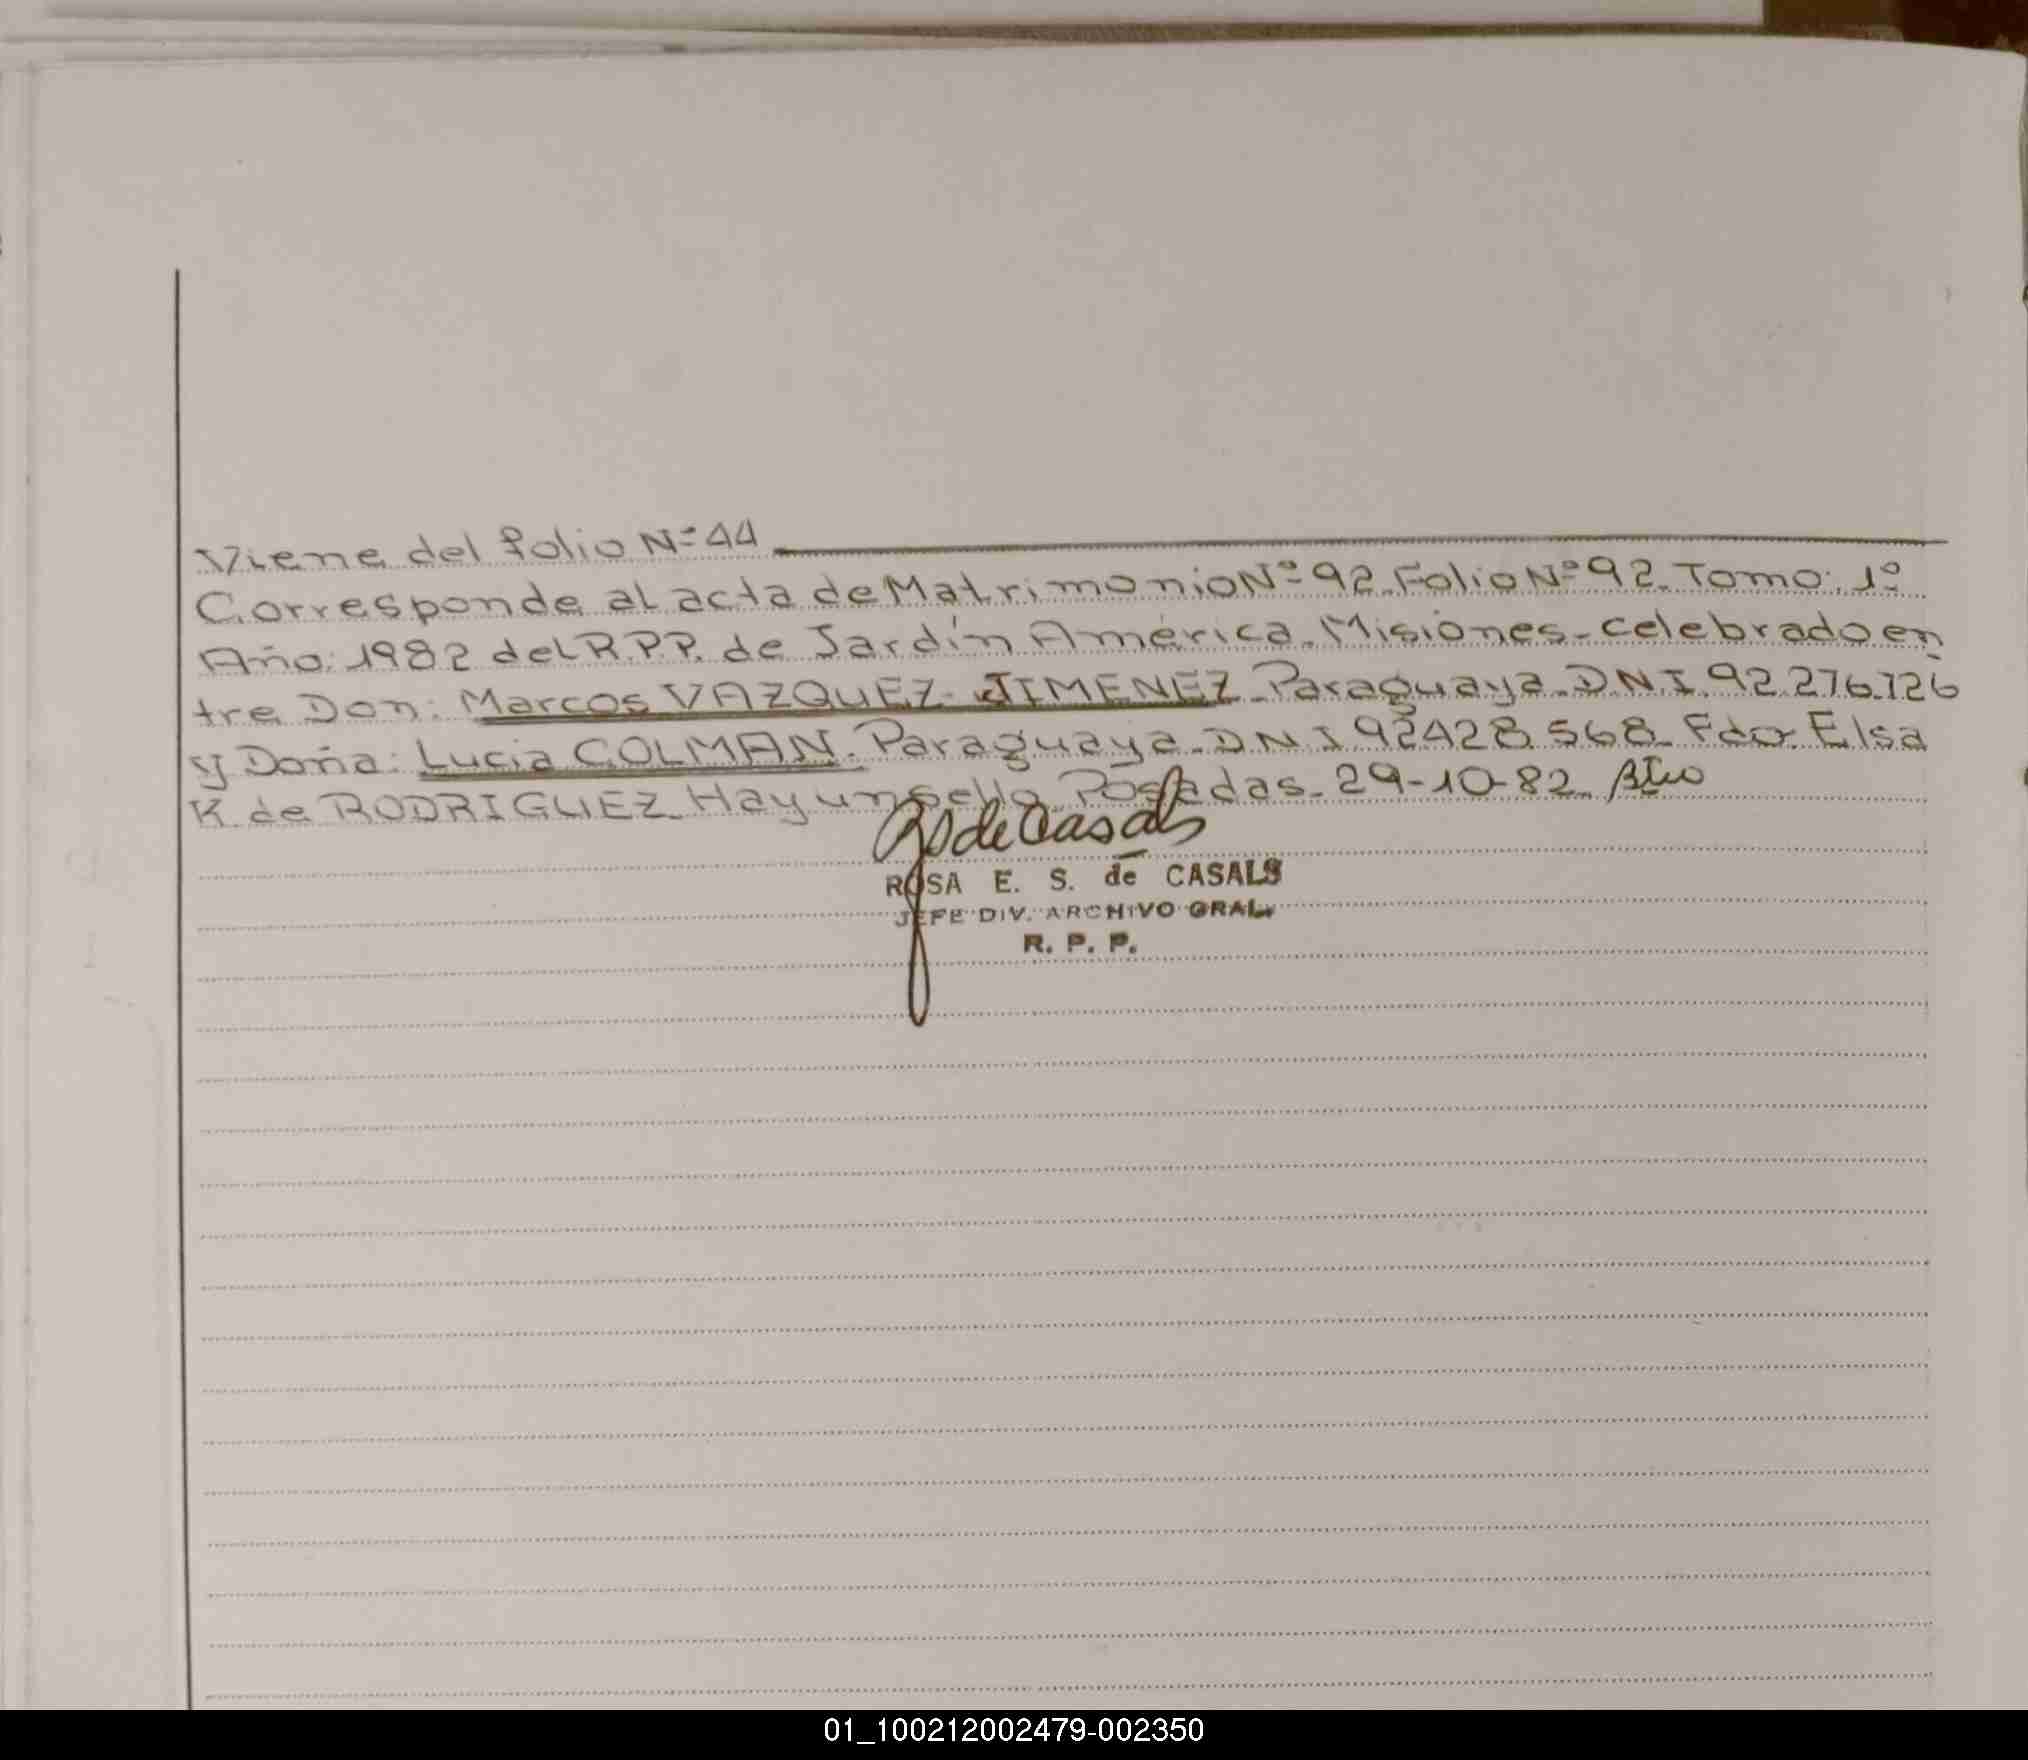 Viene del folio Nº 44
Corresponde al acta de Matrimonio Nº 92. Folio Nº 92. Tomo: 1º
Año: 1982 del R.P.P. de Jardín América. Misiones - celebrado en
tre Don: Marcos VAZQUEZ - JIMENEZ - Paraguaya. D.N.I. 92.276.726
y Doña: Lucia COLMAN. Paraguaya. D N I 92428.568. Fdo. Elsa
K. de RODRIGUEZ. Hay un sello. Posadas. 29-10-82.
RS de Casals
ROSA E. S. de CASALS
JEFE DIV. ARCHIVO GRAL.
R. P. P.
01_100212002479-002350